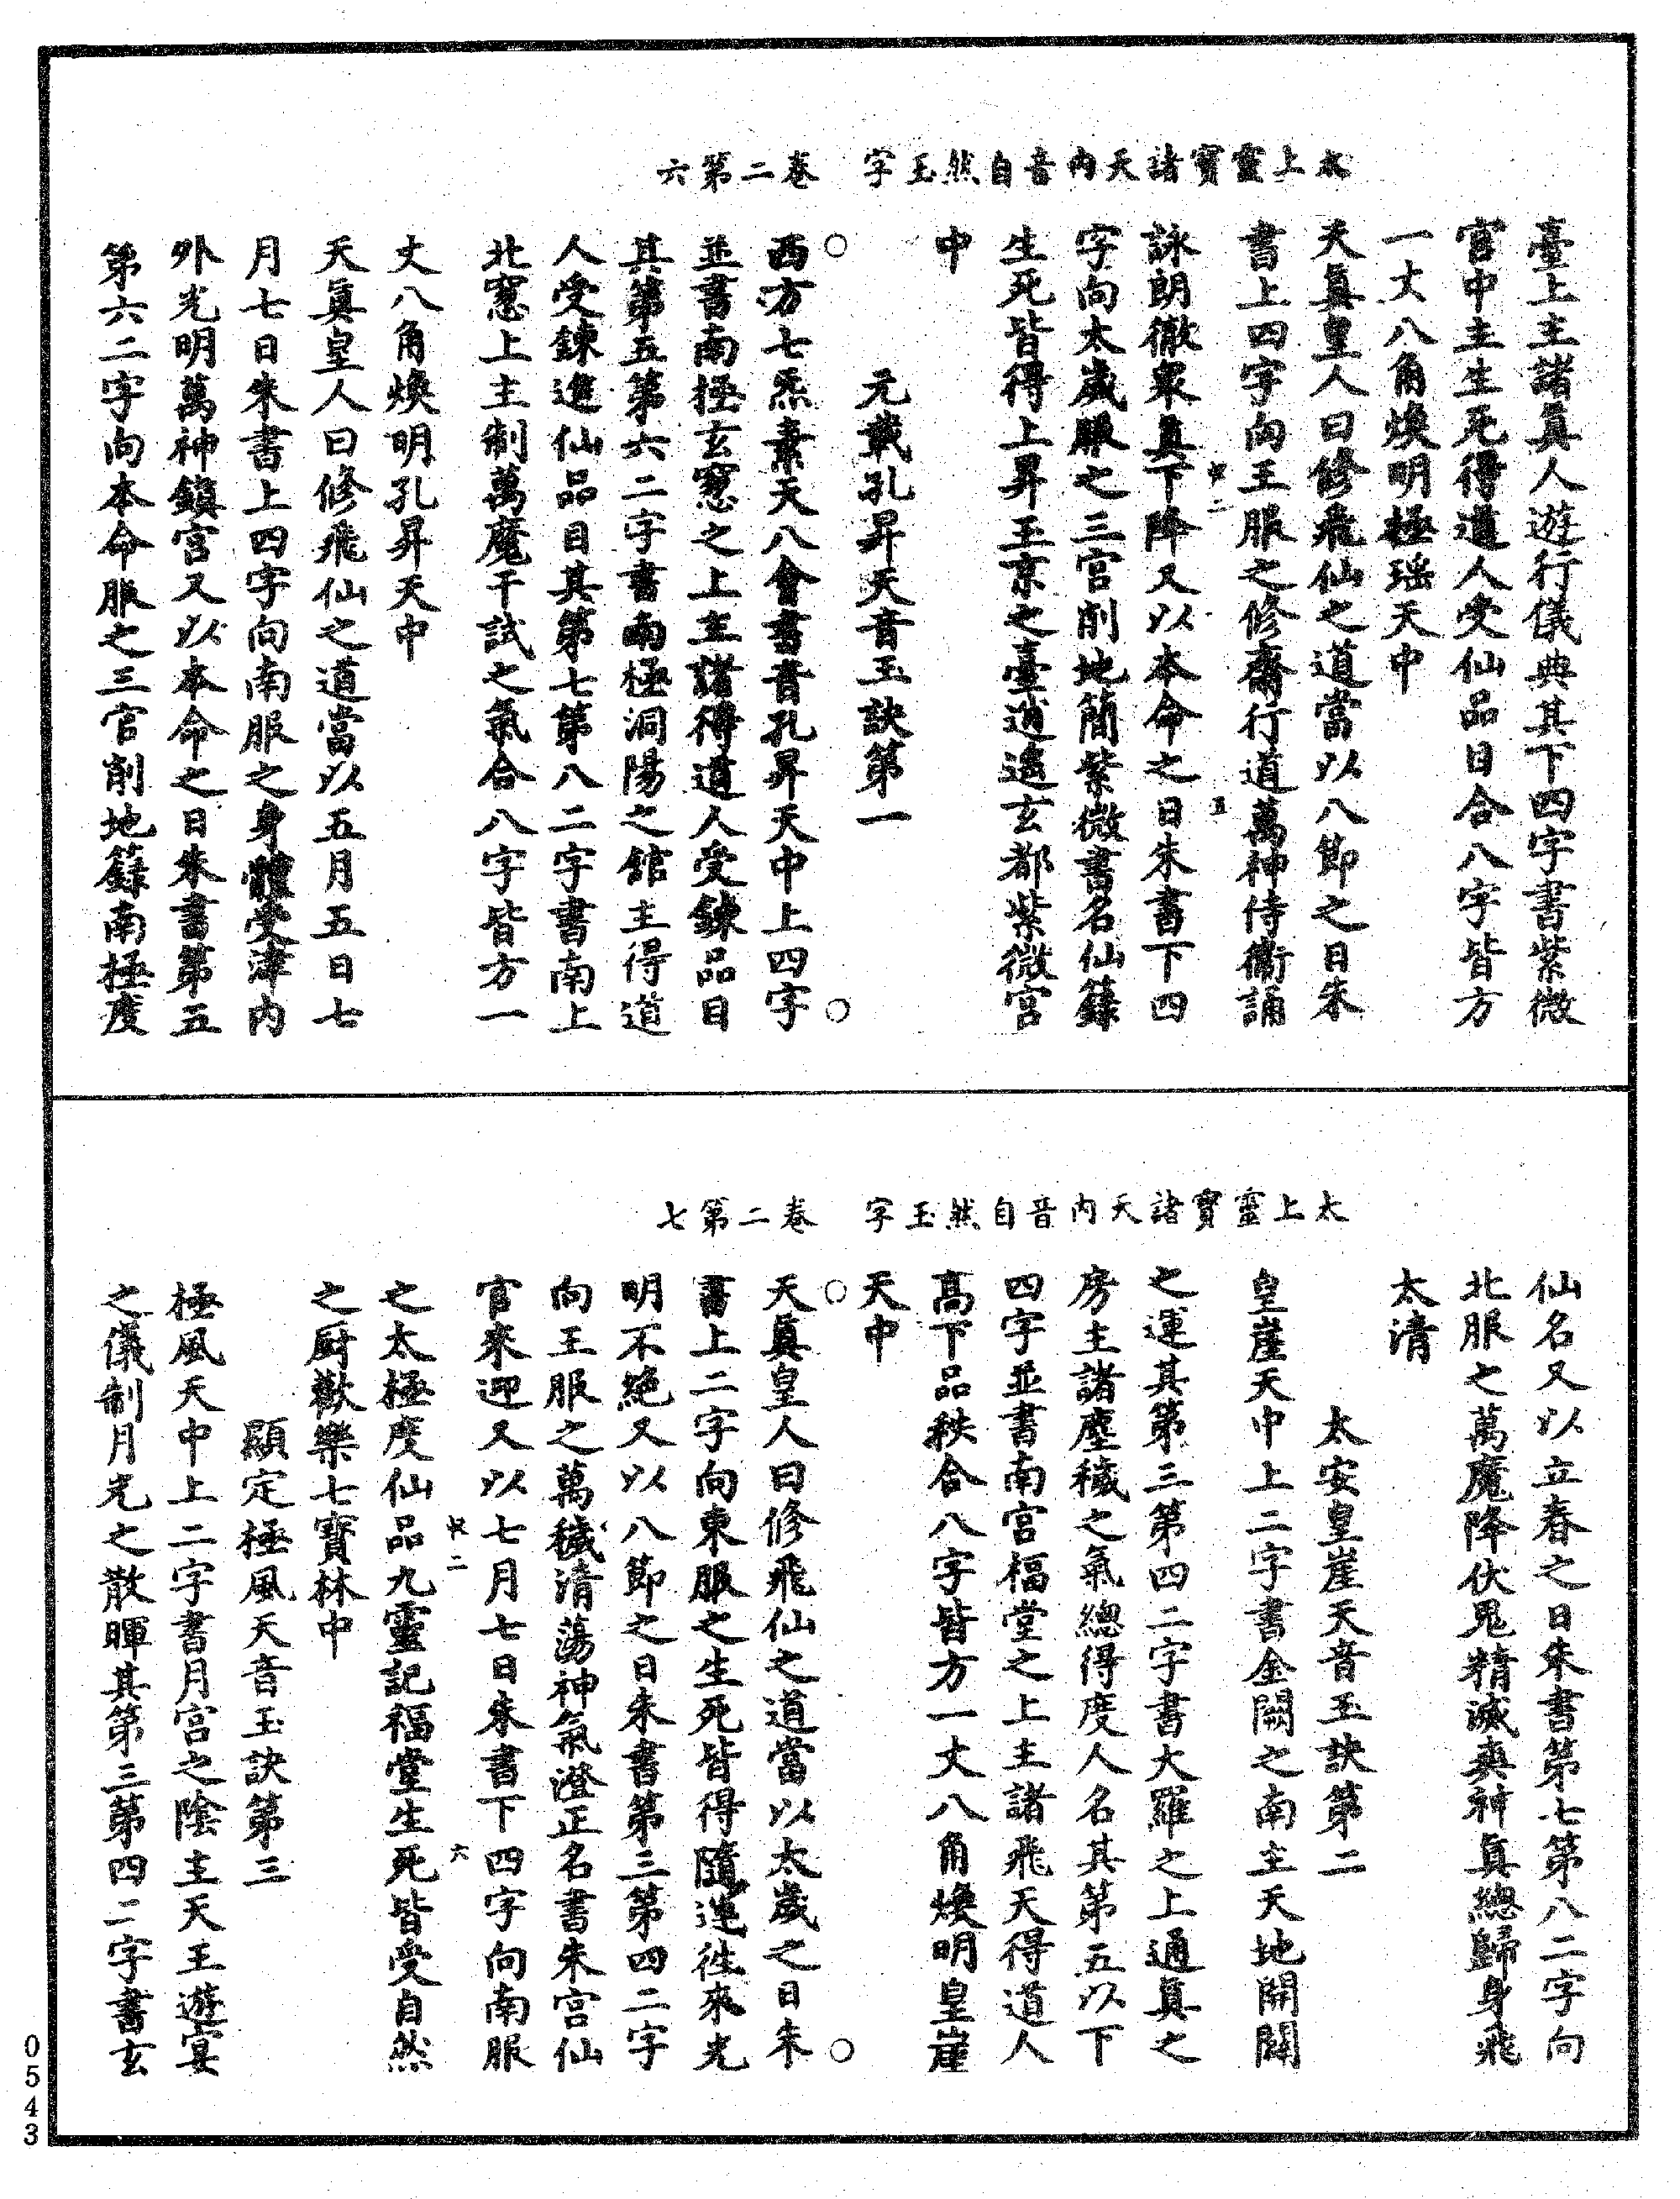 太上靈寶諸天內音自然玉字　卷二第六
臺上主諸眞人遊行儀典其下四字書紫微
宮中主生死得道人受仙品目合八字皆方
一丈八角煥明極瑶天中
天眞皇人曰修飛仙之道當以八節之日朱
書上四字向王服之修齋行道萬神侍衞誦
詠朗徹衆眞下降又以本命之日朱書下四
字向太歲服之三官削地簡紫微書名仙籙
生死皆得上昇玉京之臺逍遥玄都紫微宮
中
元載孔昇天音玉訣第一
西方七炁素天八會書音孔昇天中上四字
並書南極玄窻之上主諸得道人受鍊品目
其第五第六二字書南極洞陽之館主得道
人受鍊進仙品目其第七第八二字書南上
北窻上主制萬魔干試之氣合八字皆方一
丈八角煥明孔昇天中
天眞皇人曰修飛仙之道當以五月五日七
月七日朱書上四字向南服之身體受津內
外光明萬神鎮宮又以本命之日朱書第五
第六二字向本命服之三官削地籙南極度
太上靈寶諸天內音自然玉字　卷二第七
仙名又以立春之日朱書第七第八二字向
北服之萬魔降伏鬼精滅爽神眞總歸身飛
太清
太安皇崖天音玉訣第二
皇崖天中上二字書金闕之南主天地開闢
之運其第三第四二字書大羅之上通眞之
房主諸塵穢之氣總得度人名其第五以下
四字並書南宮福堂之上主諸飛天得道人
高下品秩合八字皆方一丈八角煥明皇崖
天中
天眞皇人曰修飛仙之道當以太歲之日朱
書上二字向東服之生死皆得隨運往來光
明不絶又以八節之日朱書第三第四二字
向王服之萬穢清蕩神氣澄正名書朱宮仙
官來迎又以七月七日朱書下四字向南服
之太極度仙品九靈記福堂生死皆受自然
之厨歡樂七寶林中
顯定極風天音玉訣第三
極風天中上二字書月宮之陰主天王遊宴
之儀制月光之散暉其第三第四二字書玄
0543